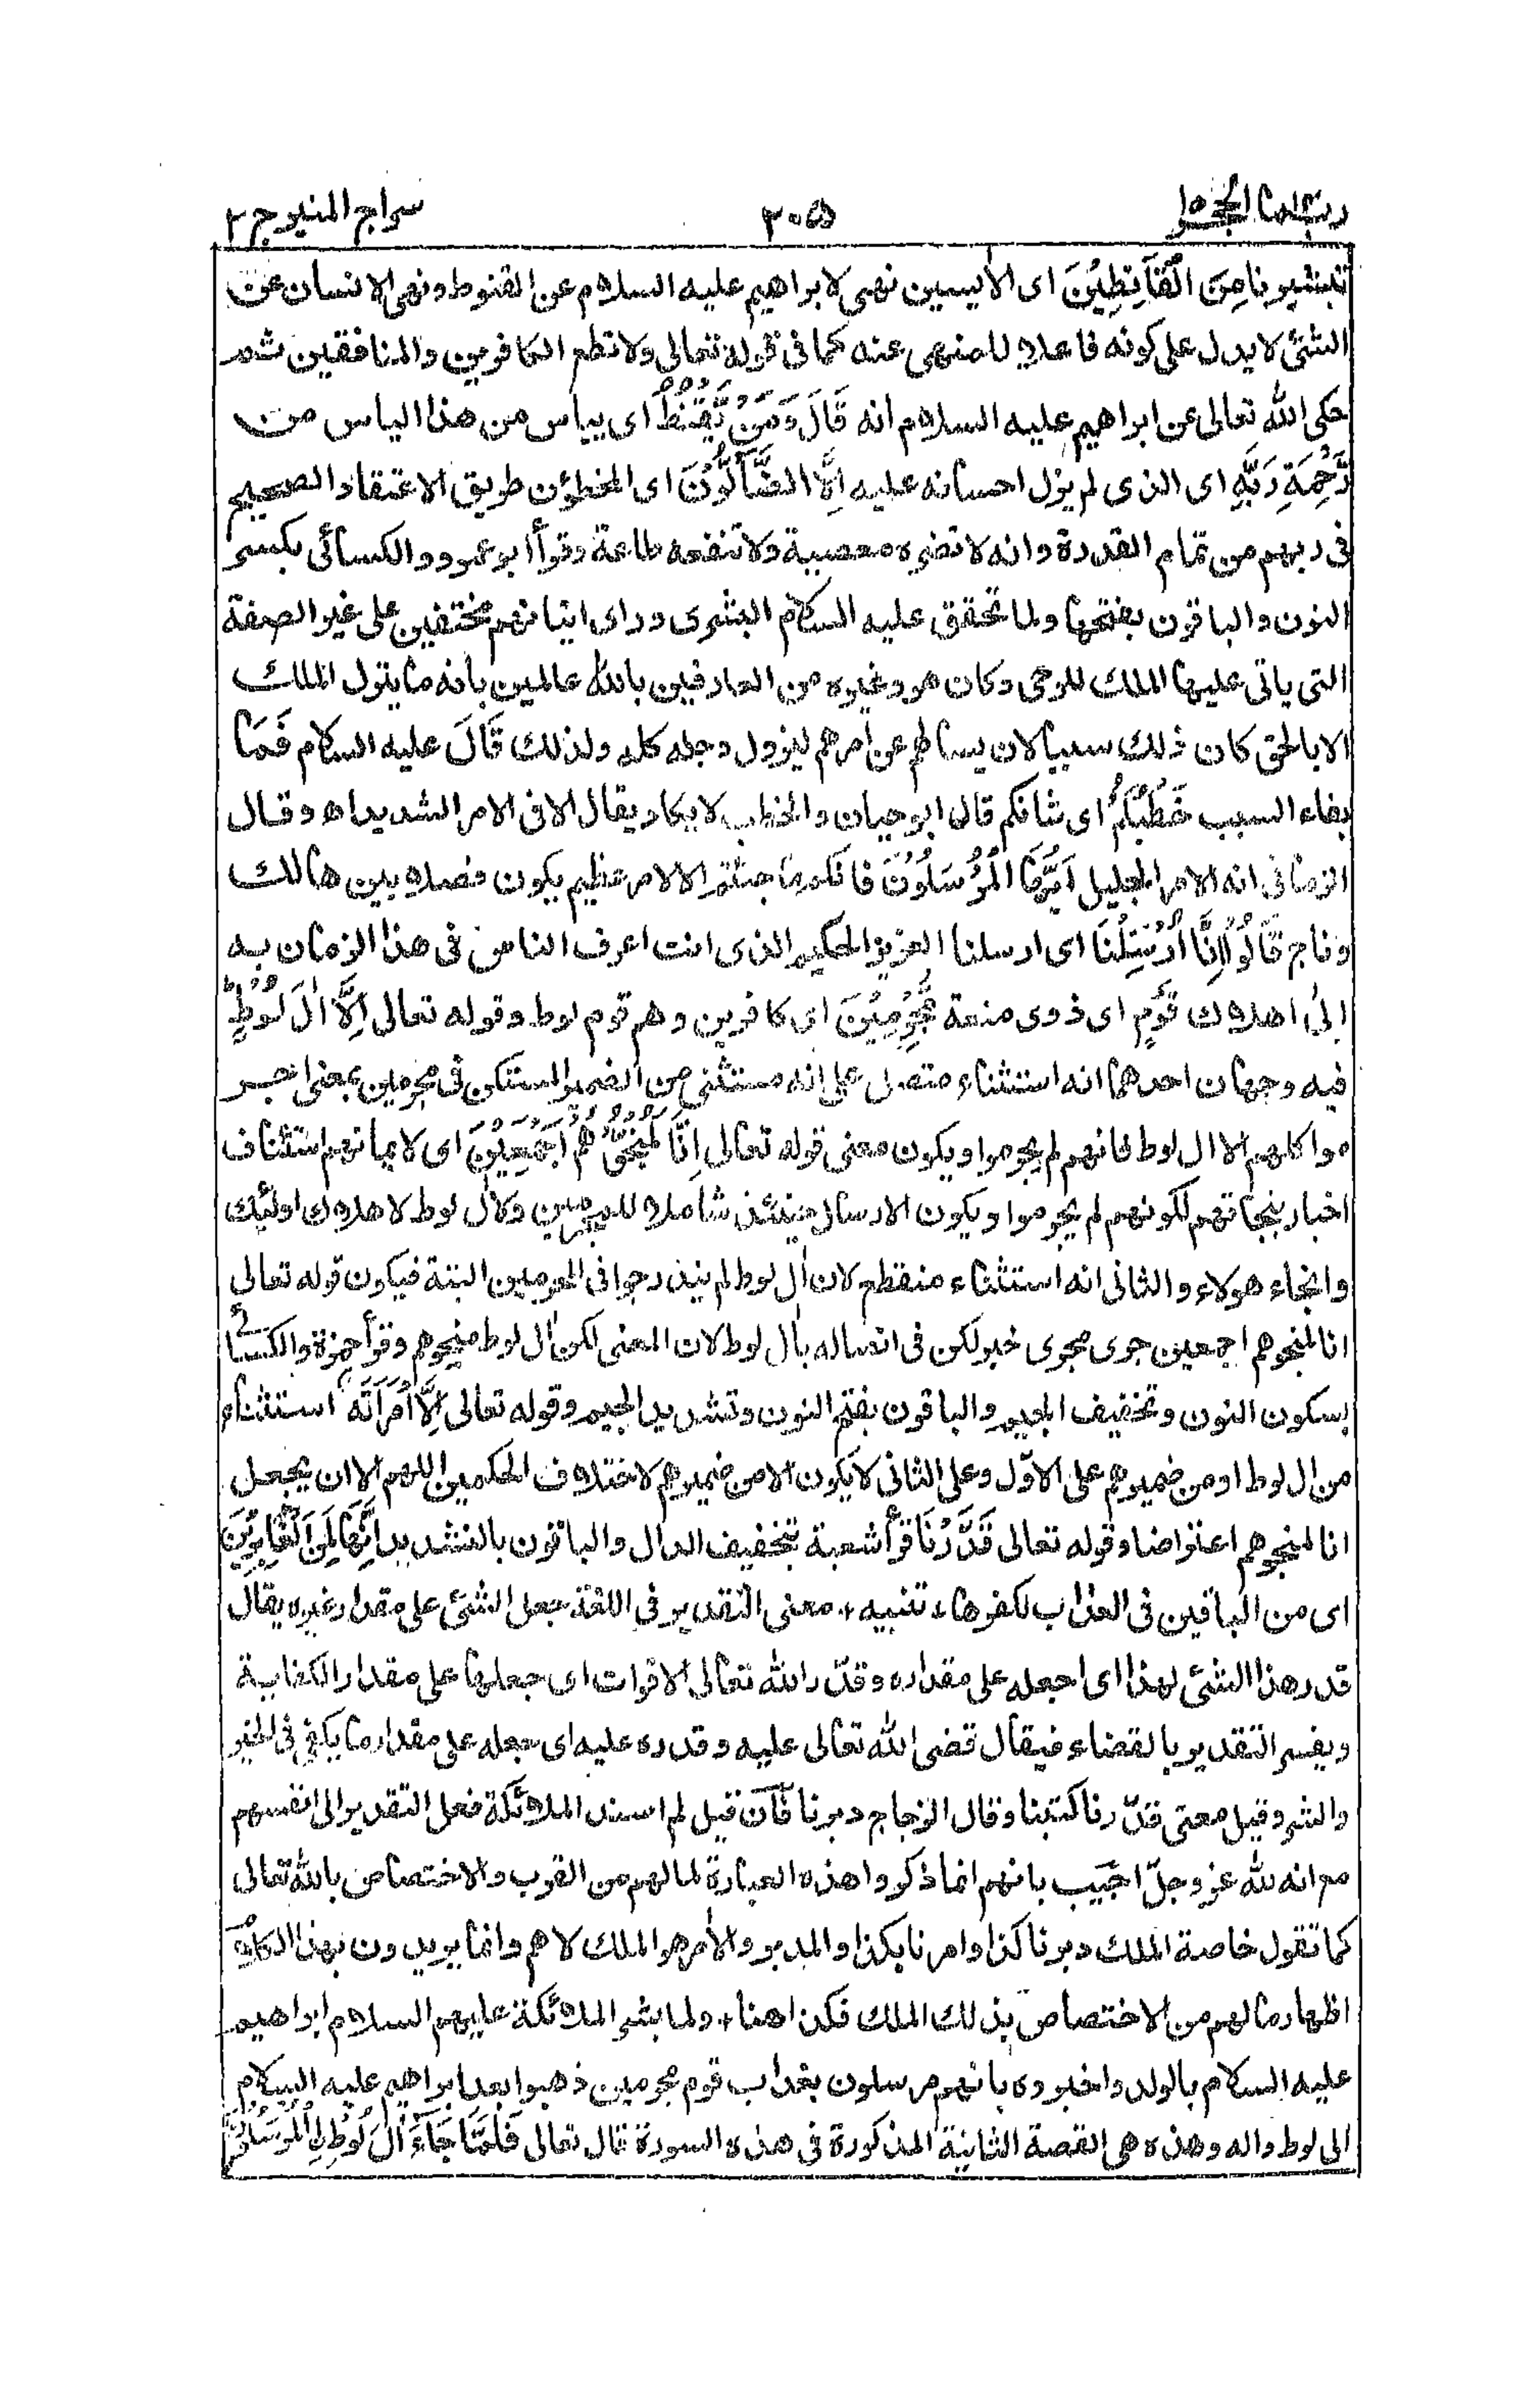 ربما١٤ الحجر١٥ ٢٠٥ سراج المنير ج ٢
تبشيرنا مِنَ الْقَانِطِيْنَ اى الأيسين نهى لابراهيم عليه السلام عن القنوط ونهى الانسان عن
الشئ لا يدل على كونه فاعلا للمنهى عنه كما فى قوله تعالى ولا تطع الكافرين والمنافقين ثم
حكى الله تعالى عن ابراهيم عليه السلام انه قَالَ وَمَنْ يَّقْنَطُ اى ييأس من هذا الياس من
رَّحْمَةِ رَبِّهِ اى الذى لم يزل احسانه عليه اِلَّا الضَّآلُّوْنَ اى المخطؤن طريق الاعتقاد الصحيح
فى ربهم من تمام القدرة وانه لا تضره معصية ولا تنفعه طاعة وقرأ أبو عمرو والكسائى بكسر
النون والباقون بفتحها ولما تحقق عليه السلام البشرى وراى اتيانهم مختفين على غير الصفة
التى ياتى عليها الملك للوحى وكان هو وغيره من العارفين بالله عالمين بأنه ما ينزل الملك
الا بالحق كان ذلك سببا لان يسألهم عن أمرهم ليزول وجله كله ولذلك قَالَ عليه السلام فَمَا
بفاء السبب خَطْبُكُمْ اى شانكم قال ابو حيان والخطب لا يكاد يقال الا فى الامر الشديد اه وقال
الرمانى انه الامر الجليل اَيُّهَا الْمُرْسَلُوْنَ فانكم ما جئتم الا لامر عظيم يكون فصلا بين هالك
وناج قَالُوْا اِنَّا اُرْسِلْنَا اى ارسلنا العزيز الحكيم الذى انت اعرف الناس فى هذا الزمان به
اِلىٰ اهلاك قَوْمٍ اى ذوى منعة مُّجْرِمِيْنَ اى كافرين وهم قوم لوط وقوله تعالى اِلَّا اٰلَ لُوْطٍ
فيه وجهان احدهما انه استثناء متصل على انه مستثنى من الضمير المستكن فى مجرمين بمعنى اجر
موا كلهم الا ال لوط فانهم لم يجرموا ويكون معنى قوله تعالى اِنَّا لَمُنَجُّوْهُمْ اَجْمَعِيْنَ اى لايمانهم استئناف
اخبار بنجاتهم لكونهم لم يجرموا ويكون الارسال حينئذ شاملا للمجرمين ولاٰل لوط لاهلاك اولئك
وانجاء هولاء والثانى انه استثناء منقطع لان اٰل لوط لم يندرجوا فى المجرمين البتة فيكون قوله تعالى
انا لمنجوهم اجمعين جرى مجرى خبر لكن فى اتصاله باٰل لوط لان المعنى لكن اٰل لوط منجوهم وقرأ حمزة والكسائى
بسكون النون وتخفيف الجيم والباقون بفتح النون وتشديد الجيم وقوله تعالى اِلَّا امْرَاَتَهٗ استثناء
من ال لوط او من ضميرهم على الاوّل وعلى الثانى لا يكون الا من ضميرهم لاختلاف الحكمين اللهم الا ان يجعل
انا لمنجوهم اعتراضا وقوله تعالى قَدَّرْنَا قرأ شعبة بتخفيف الدال والباقون بالتشديد اِنَّهَا لَمِنَ الْغَابِرِيْنَ
اى من الباقين فى العذاب لكفرها+ تنبيه+ معنى التقدير فى اللغة جعل الشئ على مقدار غيره يقال
قدر هذا الشئ لهذا اى اجعله على مقداره وقدّر الله تعالى الاقوات اى جعلها على مقدار الكفاية
ويفسر التقدير بالقضاء فيقال قضى الله تعالى عليه وقدره عليه اى جعله على مقدار ما يكفى فى الخير
والشر وقيل معنى قدّرنا كتبنا وقال الزجاج دبرنا فآن قيل لم اسند الملائكة فعل التقدير الى انفسهم
مع انه لله عز وجلّ اجيب بانهم انما ذكروا هذه العبارة لما لهم من القرب والاختصاص بالله تعالى
كما تقول خاصة الملك دبرنا كذا وامرنا بكذا والمدبر والأمر هو الملك لا هم وانما يريدون بهذا الكلام
اظهار ما لهم من الاختصاص بذلك الملك فكذا هنا+ ولما بشر الملائكة عليهم السلام ابراهيم
عليه السلام بالولد واخبروه بانهم مرسلون بعذاب قوم مجرمين ذهبوا بعد ابراهيم عليه السلام
الى لوط واله وهذه هى القصة الثانية المذكورة فى هذه السورة قال تعالى فَلَمَّا جَآءَ اٰلَ لُوْطِ اِۨلْمُرْسَلُوْنَ